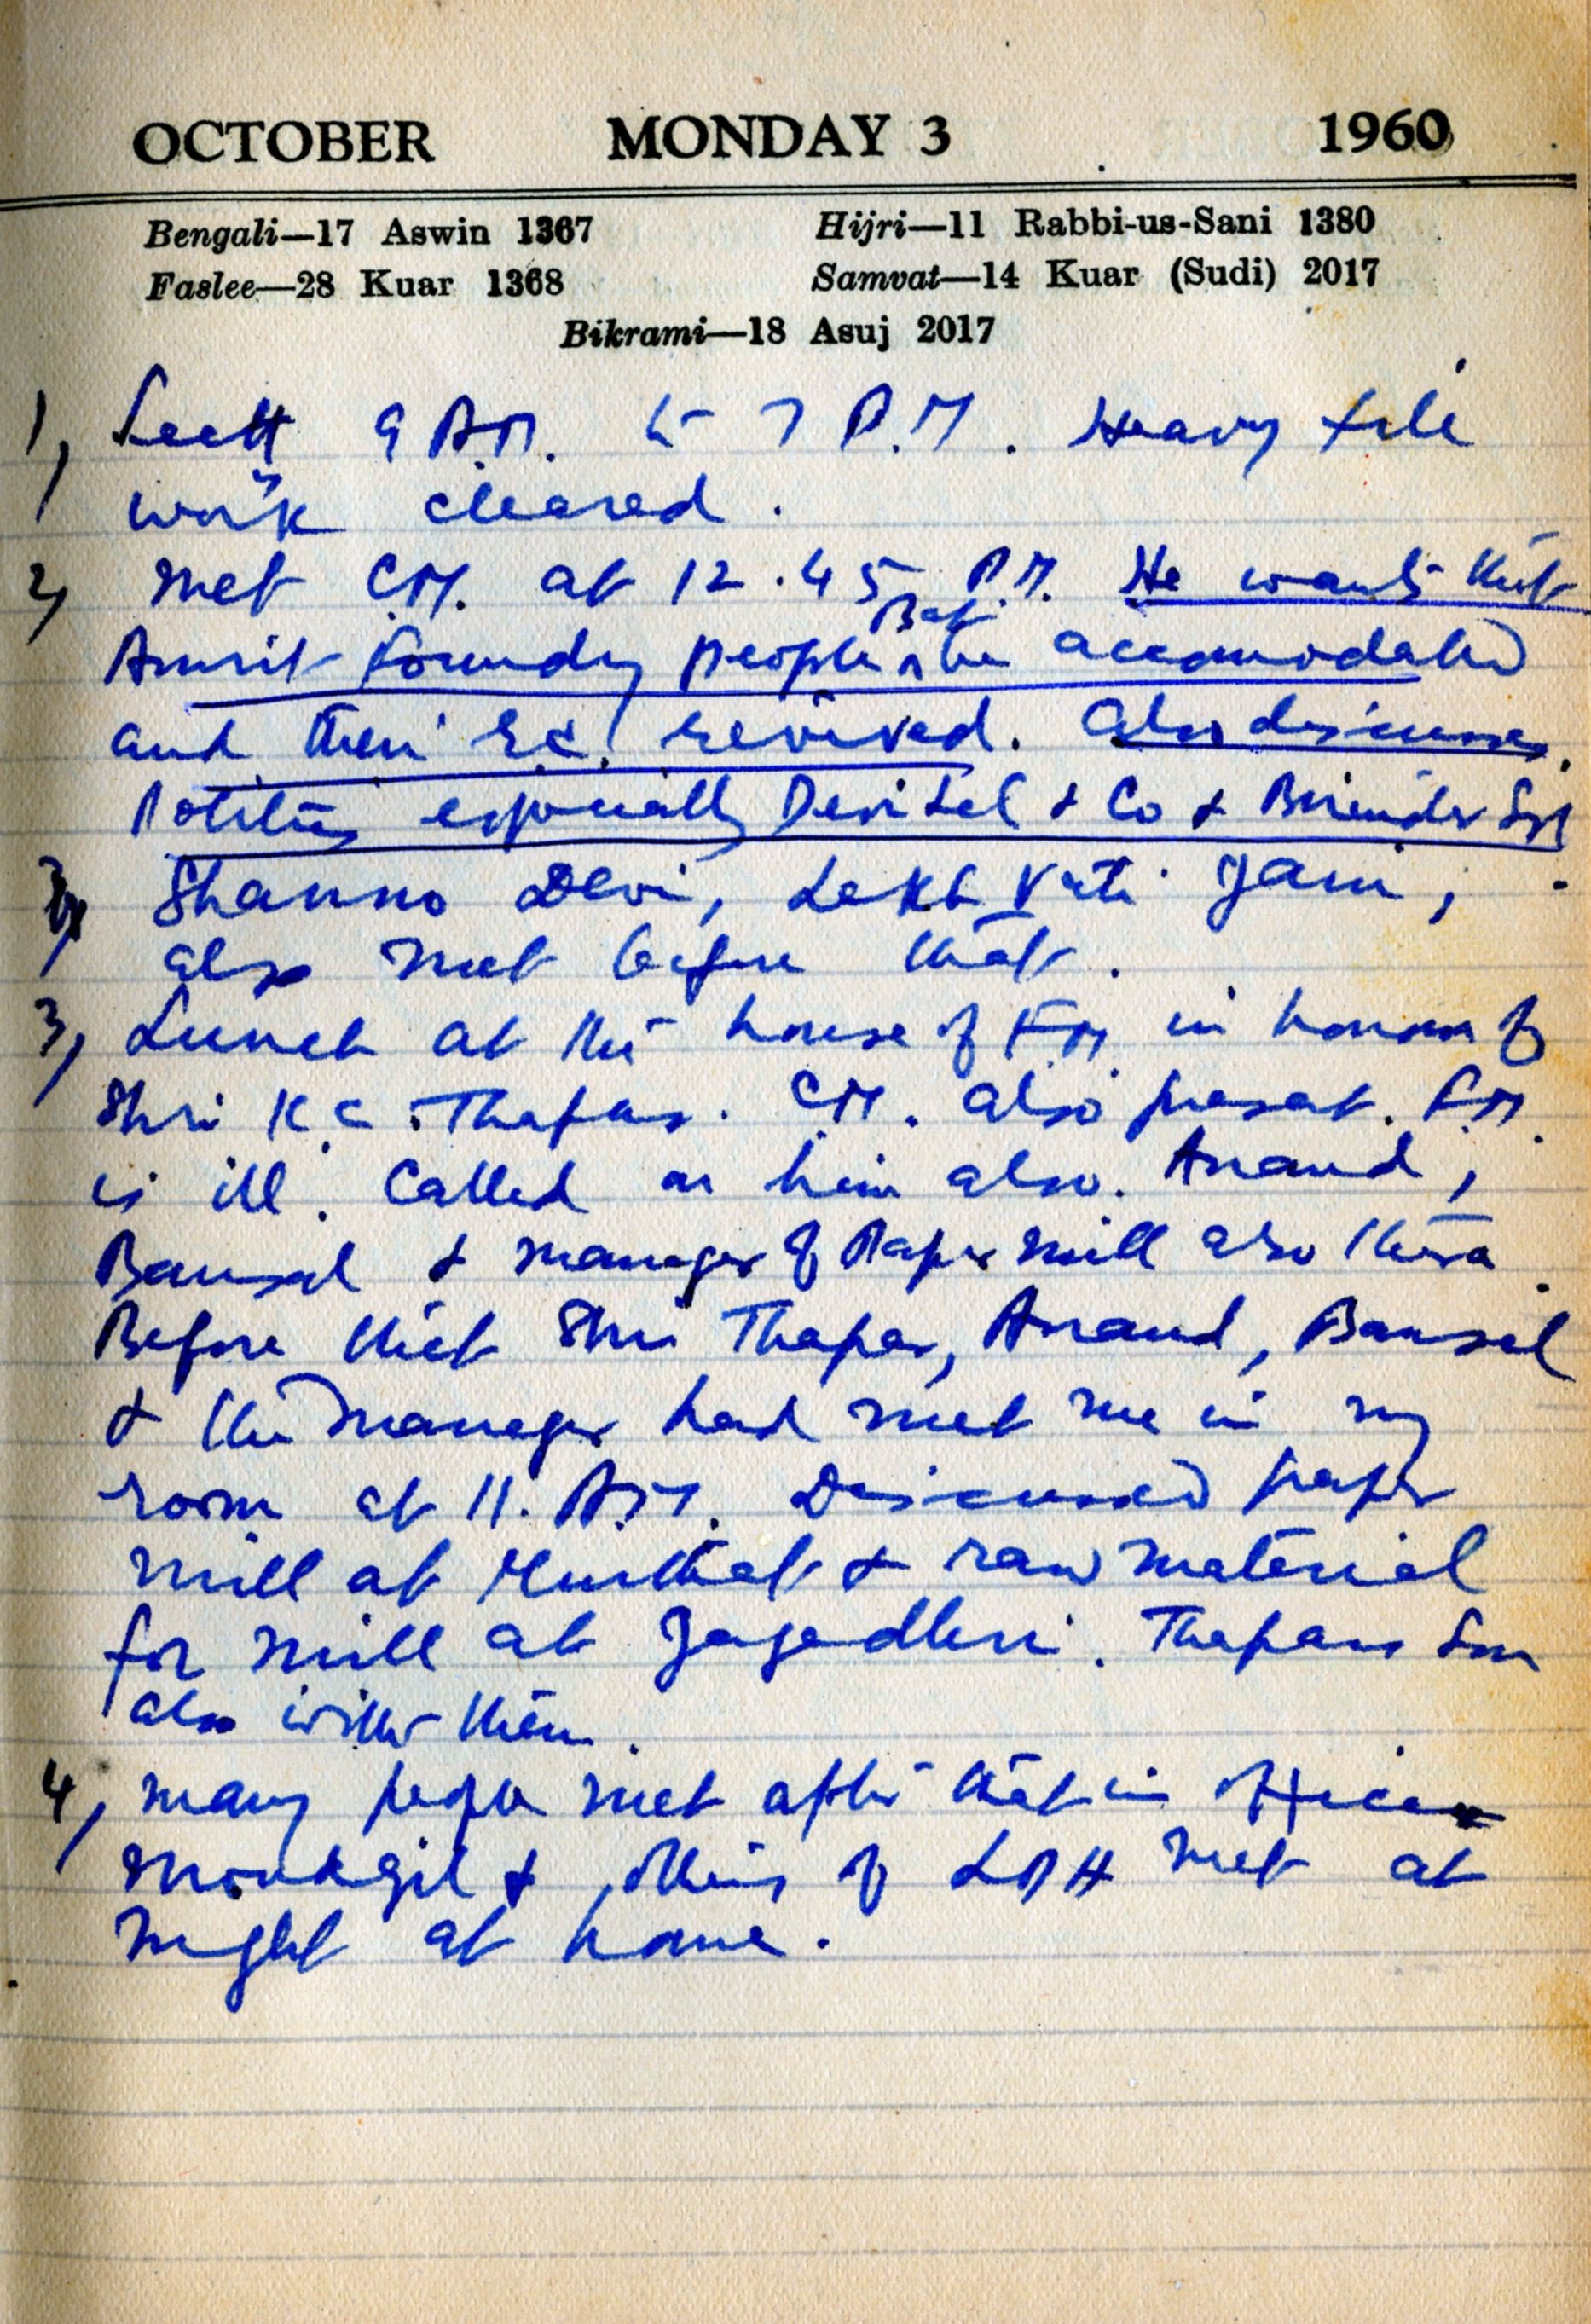 OCTOBER MONDAY 3 1960
Bengali—17 Aswin 1367 Hijri—11 Rabbi-us-Sani 1380
Faslee—28 Kuar 1368 Samvat—14 Kuar (Sudi) 2017
Bikrami—18 Asuj 2017
1, Sectt 9 A.M. to 7 P.M. Heavy file
work cleared.
2, Met C.M. at 12.45 P.M. He wants that
Amrit Foundry people be accomodated
and their revived. Also discussed
Politics especially Devi Lal & Co & Birender
Shanno Devi, Lekh Vati Jain,
also met before that.
3, Lunch at the house of F.M. in honour of
Shri K.C. Thapar. C.M. also present. F.M.
is ill. Called on him also. Anand,
Bansal & Manager of Paper Mill also there.
Before that Shri Thapar, Anand, Bansal
& the Manager had met me in my
room at 11. A.M. Discussed paper
mill at & raw material
for mill at Jagadhri. Thapars Son
also with them.
4, Many people met after that in office
& others of met at
night at home.